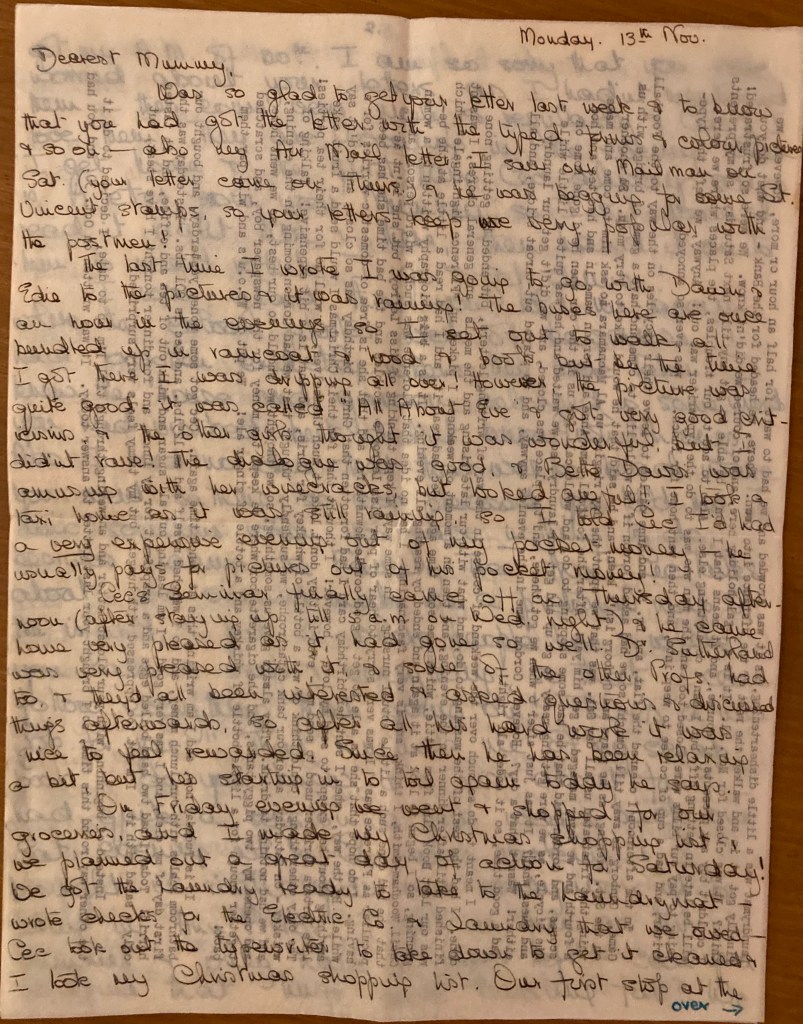 Monday. 13th Nov.
Dearest Mummy,
Was so glad to get your letter last week & to know
that you had got the letter with the typed forms & colour pictures
& so on — also my Air Mail letter. I saw our Mailman on
Sat. (your letter came on Thurs.) & he was begging for some St.
Vincent stamps, so your letters keep me very popular with
the postmen.
The last time I wrote I was going to go with Dawn &
Edie to the pictures & it was raining! The buses here are once
an hour in the evenings so I set out to walk all
bundled up in raincoat & hood & boots, but by the time
I got there I was dripping all over! However the picture was
quite good, it was called "All About Eve" & got very good crit-
icisms & the other girls thought it was wonderful but I
didn't rave! The dialogue was good, & Bette Davis was
amusing with her wisecracks but looked awful! I took a
taxi home as it was still raining. So I told Cec I'd had
a very expensive evening out of my pocket money — he
usually pays for pictures out of his pocket money!
Cec's Seminar finally came off on Thursday after-
noon (after staying up till 5 a.m. on Wed. night) & he came
home very pleased as it had gone so well. Dr. Sutherland
was very pleased with it, & some of the other Profs. had
to, & they'd all been interested & asked questions & discussed
things afterwards, so after all his hard work it was
nice to feel rewarded. Since then he has been relaxing
a bit but he's starting in to toil again today he says.
On Friday evening we went & shopped for our
groceries, and I made my Christmas shopping list &
we planned out a great day of action for Saturday!
We got the laundry ready to take to the laundrymat —
wrote checks for the Electric Co & Laundry that we owed —
Cec took out the typewriter to take down to get it cleaned &
I took my Christmas shopping list. Our first stop at the
over →